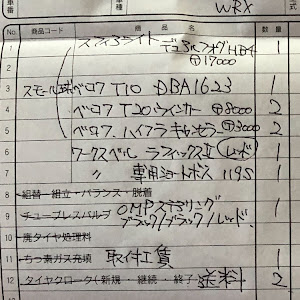 車番
車種
WRX
式
No 商品コード 商品名
1 スフィアライト
2 デュアルフォグ HB4 1
㊉17000
3 スモール球 ベロフ T10 DBA1623 1
4 ベロフ T20ウインカー ㊉8000 2
5 ベロフ ハイフラキャンセラー ㊉3000 2
6 ワークスベル ラフィックスⅡ (レッド) 1
7 〃 専用ショートボス 119S 1
8 組替・組立・バランス・脱着
9 チューブレスバルブ OMPステアリング
ブラック/ブラック/レッド. 1
10 廃タイヤ処理料
11 ちっ素ガス充填 取付工賃 1
12 タイヤクローク(新規・継続・終了) 送料 2